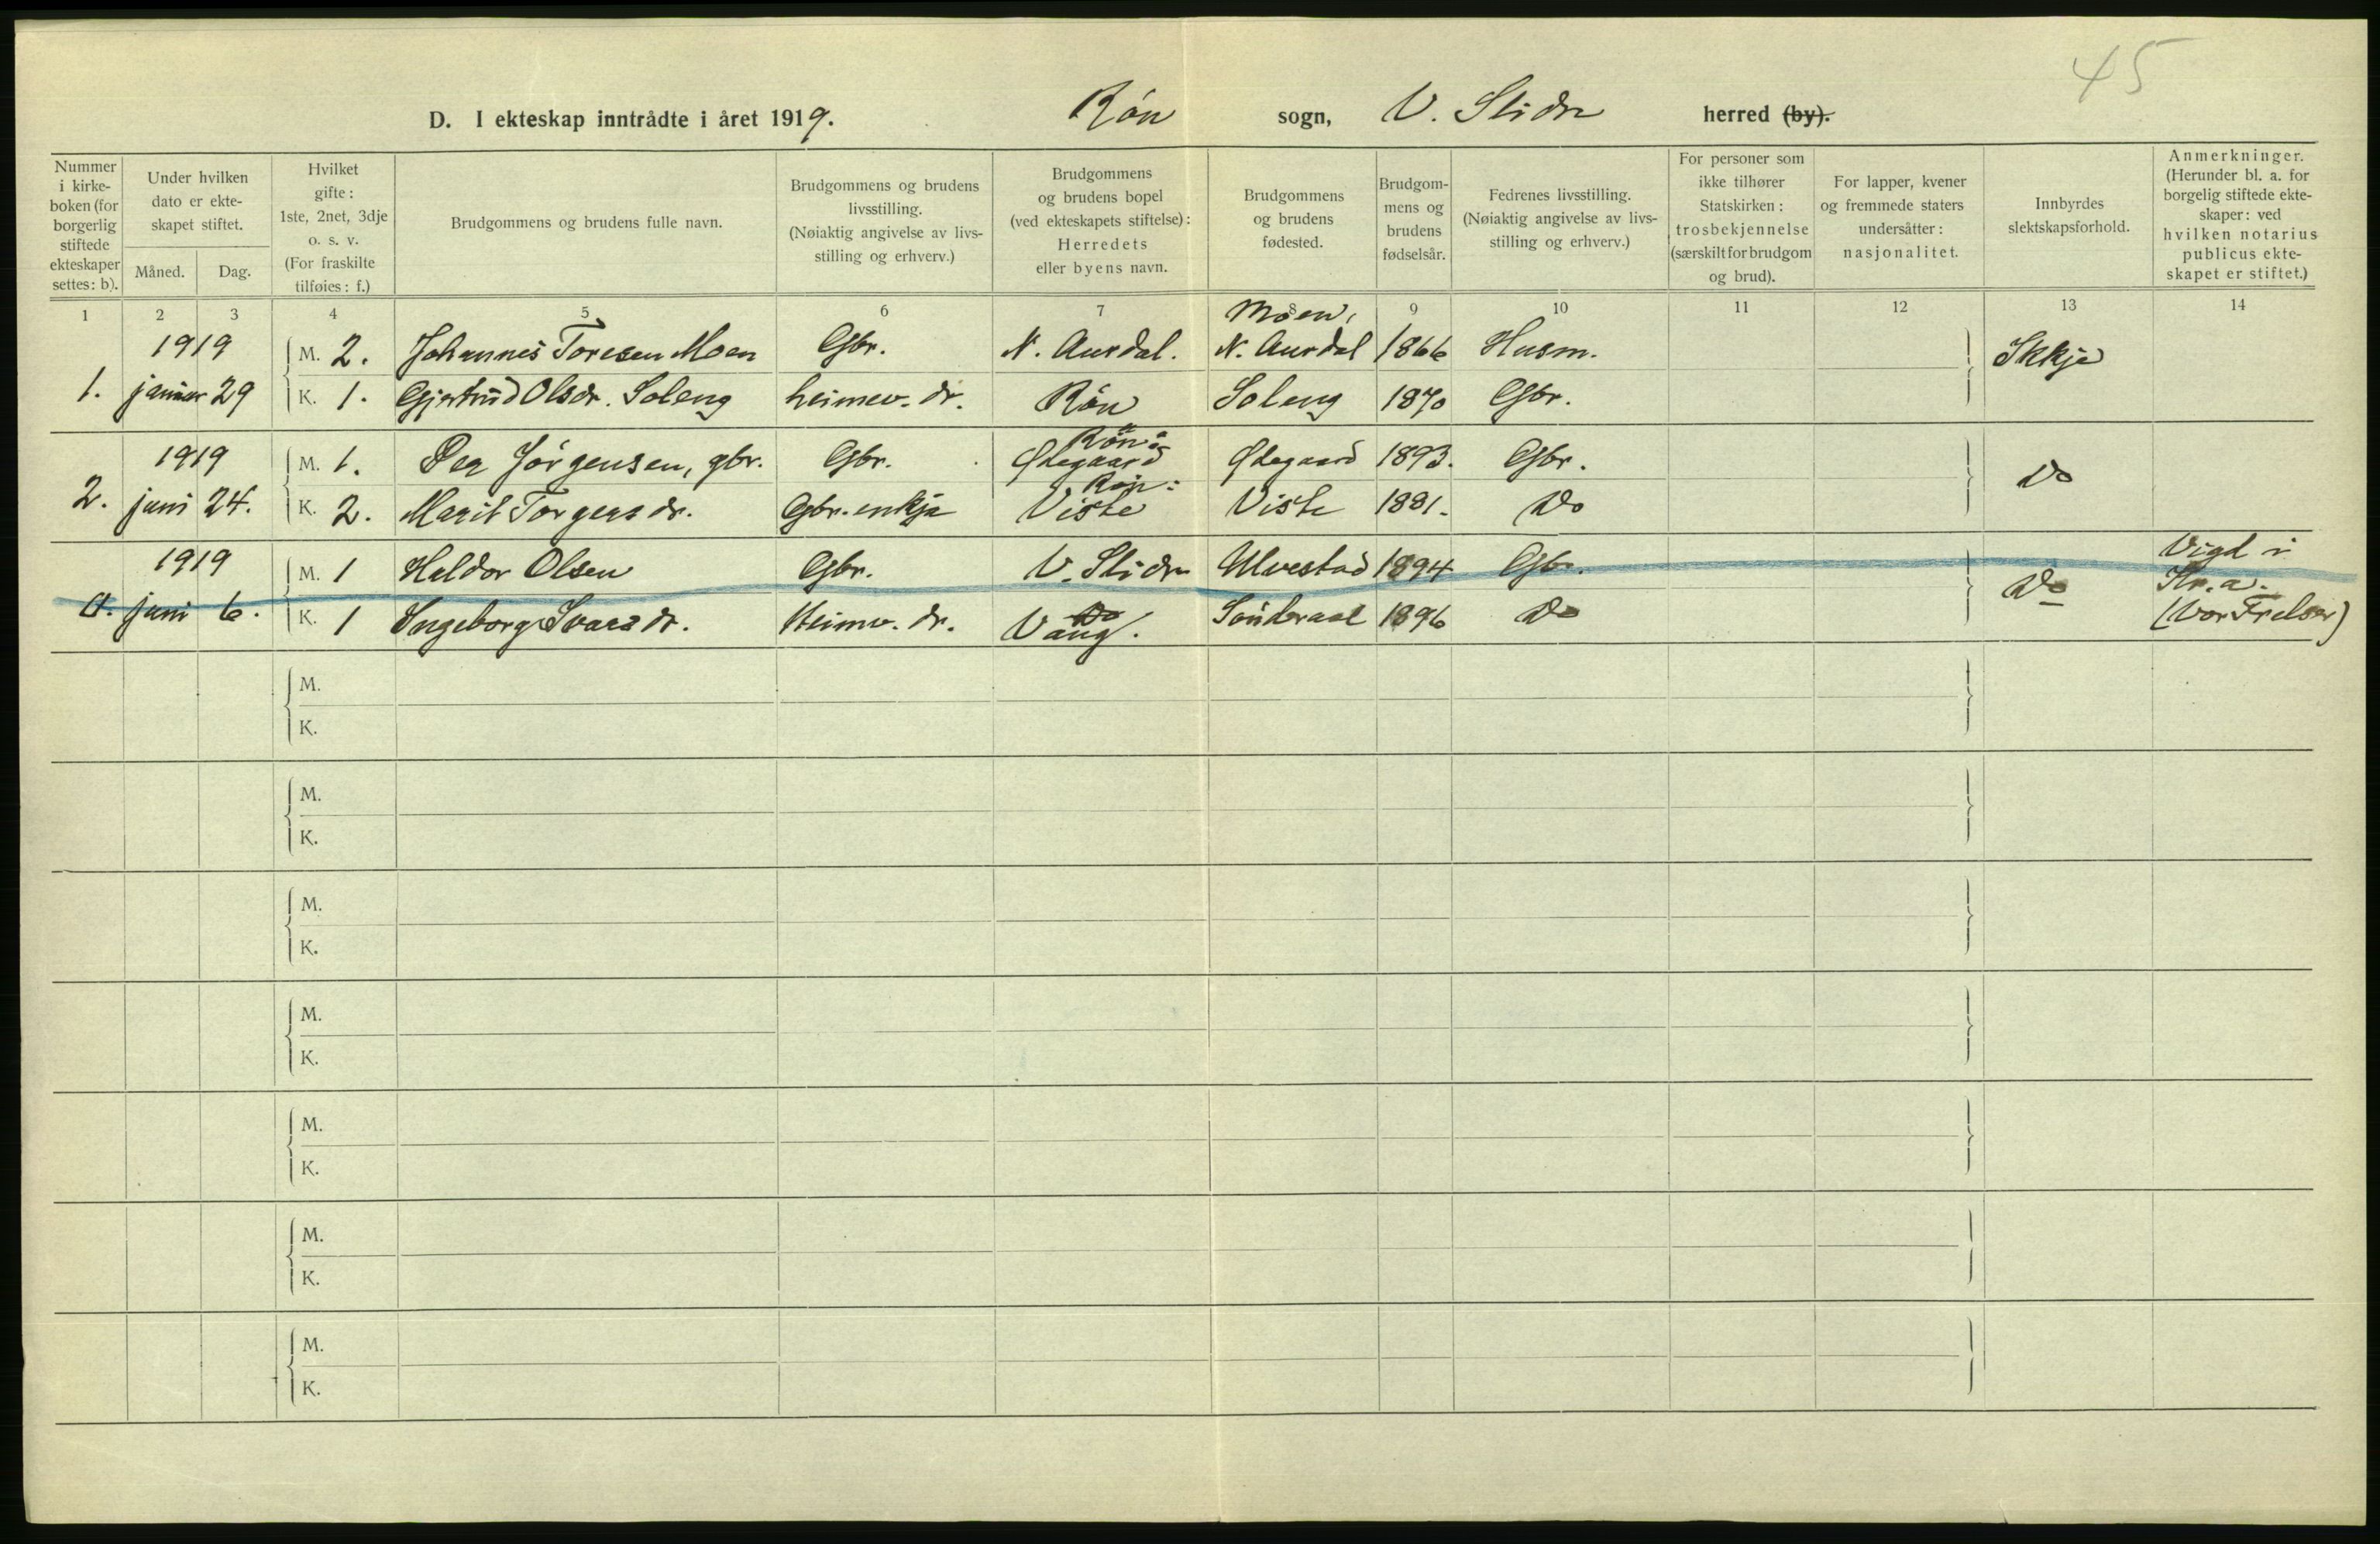 45
D. I ekteskap inntrådte i året 1919. Røn sogn, V. Slidre herred (by).
Nummer i kirkeboken (for borgerlig stiftede ekteskaper settes: b).
Under hvilken dato er ekteskapet stiftet.
Måned. Dag.
Hvilket gifte: 1ste, 2net, 3dje o. s. v. (For fraskilte tilføies: f.)
Brudgommens og brudens fulle navn.
Brudgommens og brudens livsstilling. (Nøiaktig angivelse av livsstilling og erhverv.)
Brudgommens og brudens bopel (ved ekteskapets stiftelse): Herredets eller byens navn.
Brudgommens og brudens fødested.
Brudgommens og brudens fødselsår.
Fedrenes livsstilling. (Nøiaktig angivelse av livsstilling og erhverv.)
For personer som ikke tilhører Statskirken: trosbekjennelse (særskilt for brudgom og brud).
For lapper, kvener og fremmede staters undersåtter: nasjonalitet.
Innbyrdes slektskapsforhold.
Anmerkninger. (Herunder bl. a. for borgelig stiftede ekteskaper: ved hvilken notarius publicus ekteskapet er stiftet.)
1 2 3 4 5 6 7 8 9 10 11 12 13 14
1919 M. 2. Johannes Toresen Moen Gbr. N. Aurdal. Moen, N. Aurdal 1866 Husm. Ikkje
1. januar 29 K. 1. Gjertrud Olsdr. Soleng heimev. dr. Røn Soleng 1870 Gbr.
1919 M. 1. Per Jørgensen, gbr. Gbr. Røn: Ødegaard Ødegaard 1893. Gbr. Do
2. juni 24. K. 2. Marit Torgersdr. Gbr. enkje Røn: Viste Viste 1881. Do
1919 M. 1 Haldor Olsen Gbr. V. Slidre Ulvestad 1894 Gbr. Do Vigd i Kr.a. (Vor Frelser)
juni 6. K. 1 Ingeborg Ivarsdr. Heimev. dr. Do Vang. Sønderaal 1896 Do
M.
K.
M.
K.
M.
K.
M.
K.
M.
K.
M.
K.
M.
K.